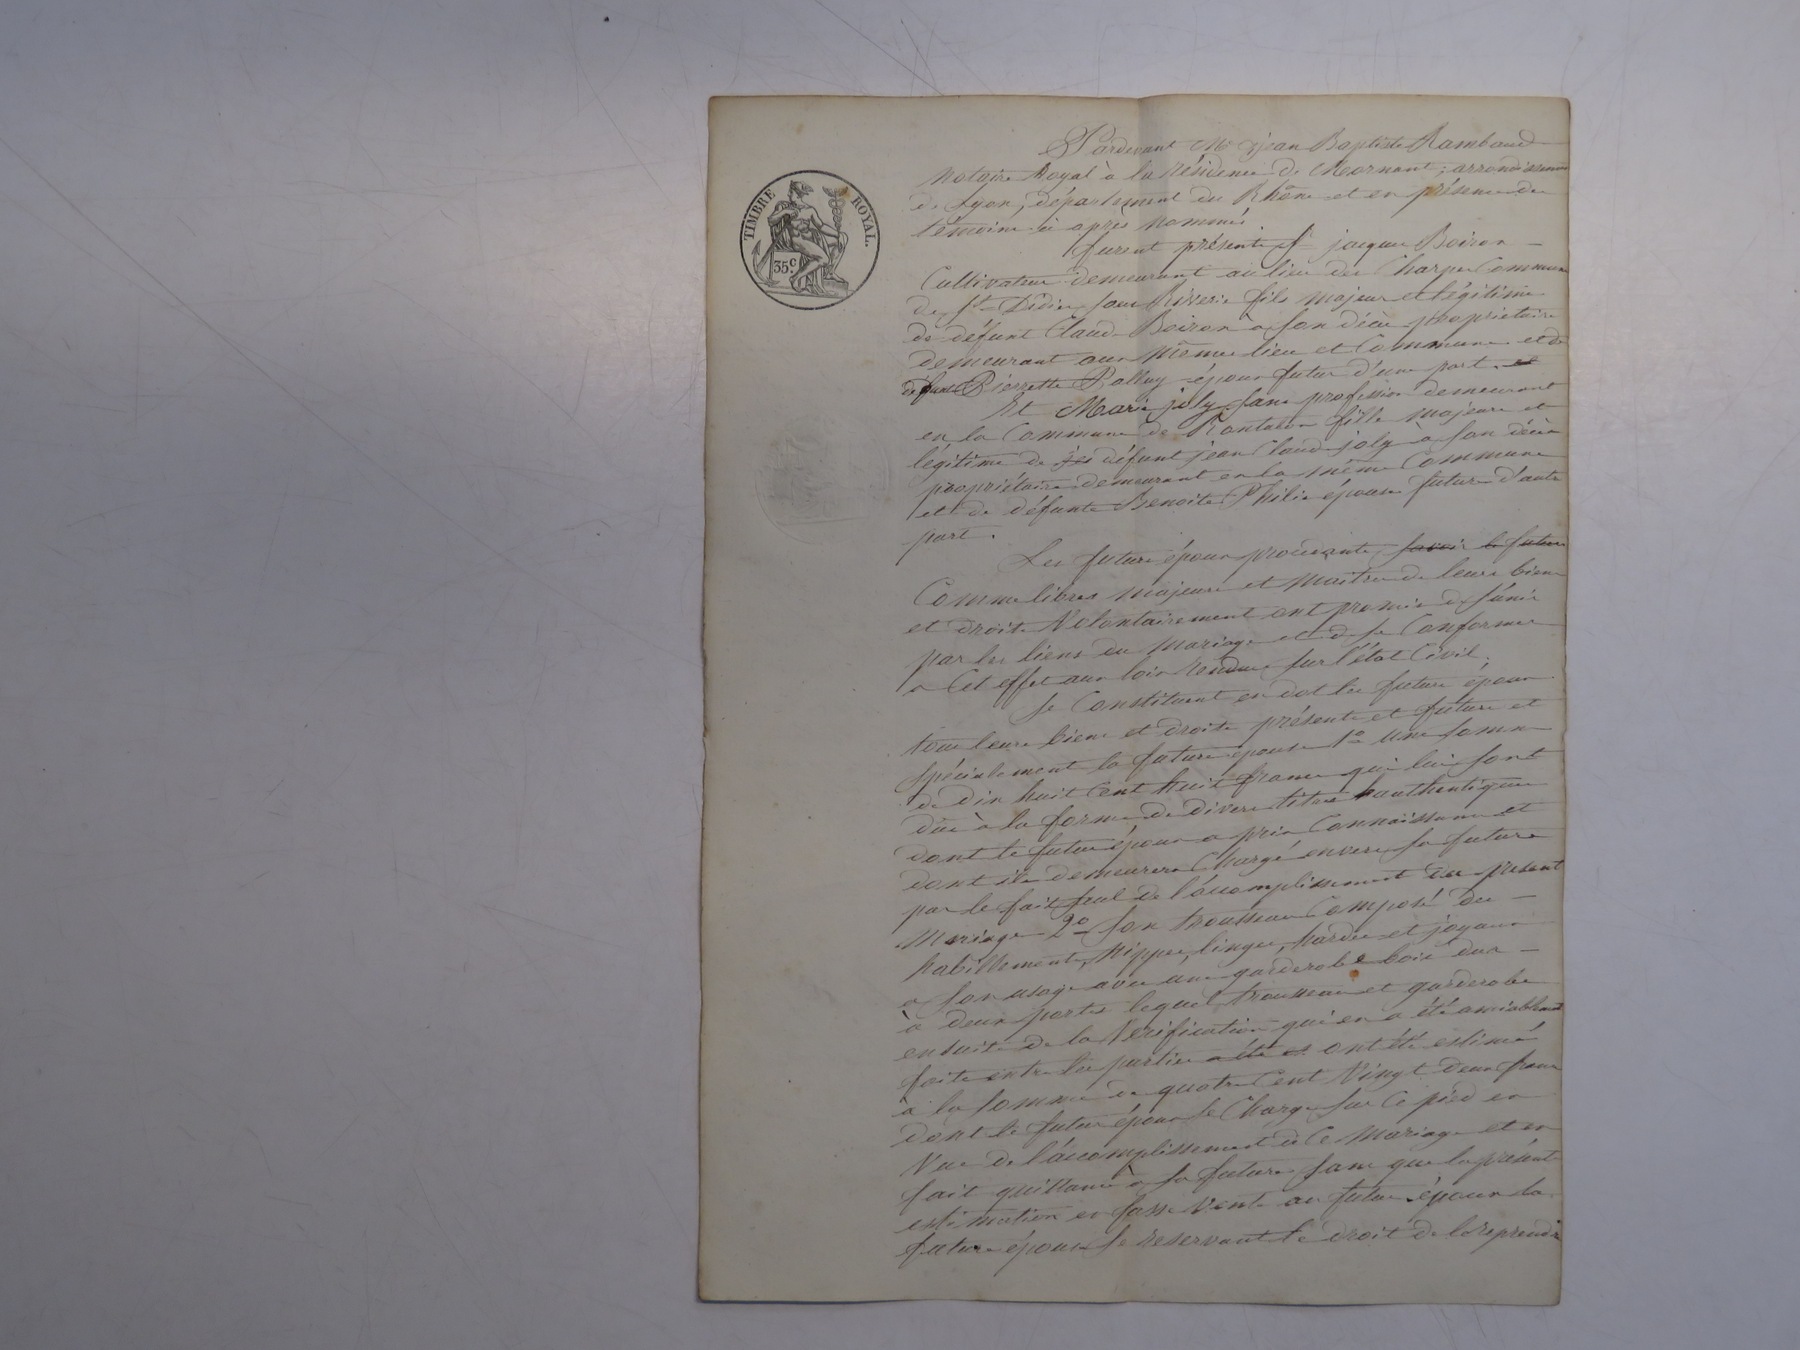 TIMBRE ROYAL.
35c.
Pardevant Me jean Baptiste Rambaud
Notaire Royal à la Résidence de Mornant, arrondissement
de Lyon, département du Rhône et en présence des
témoins ci après nommés
furent présents Sr jacques Boiron
Cultivateur demeurant au lieu des Charpes Commune
de St Didier sous Riverie fils majeur et légitime
de défunt Claude Boiron à son décès propriétaire
demeurant aux mêmes lieu et Commune et de
défunte Pierrette Palluy époux futur d'une part. et
Et Marie joly sans profession demeurant
en la Commune de Rontalon fille majeure et
légitime de défunt jean Claude joly à son décès
propriétaire demeurant en la même Commune
et de défunte Benoite Philis épouse future d'autre
part.
Les futurs époux procédants, savoir le future
Comme libres majeurs et maitres de leurs biens
et droits Volontairement ont promis de s'unir
par les liens du mariage et de se Conformer
a Cet effet aux loix rendues sur l'état Civil.
Se Constituent en dot les futurs époux
tous leurs biens et droits présents et futurs et
spécialement la future épouse 1o une somme
de dix huit Cent huit francs qui lui sont
dûs à la forme de divers titres authentiques
dont le futur époux a pris Connaissance et
dont il demeurera Chargé envers sa future
par le fait seul de l'accomplissement du présent
Mariage 2o Son trousseau Composé des
habillements, Nippes, linges, hardes et joyaux
a son usage avec une garderobe bois dur
à deux portes lequel trousseau et garderobe
ensuite de la Vérification qui en a été amiablement
faite entre les parties a été es ont été estimés
à la Somme de quatre Cent Vingt deux francs
dont le futur époux se Charge sur Ce pied en
Vue de l'accomplissement de Ce Mariage et en
fait quittance à sa future sans que la présente
estimation en fasse Vente au futur époux la
future épouse se réservant le droit de les reprendre